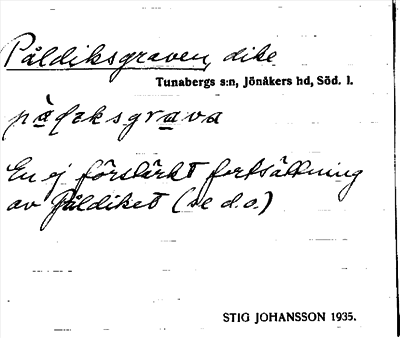 Påldiksgraven, dike
Tunabergs s:n, Jönåkers hd, Söd. l.
En ej förstärkt fortsättning
av Påldiket (se d.o.)
STIG JOHANSSON 1935.